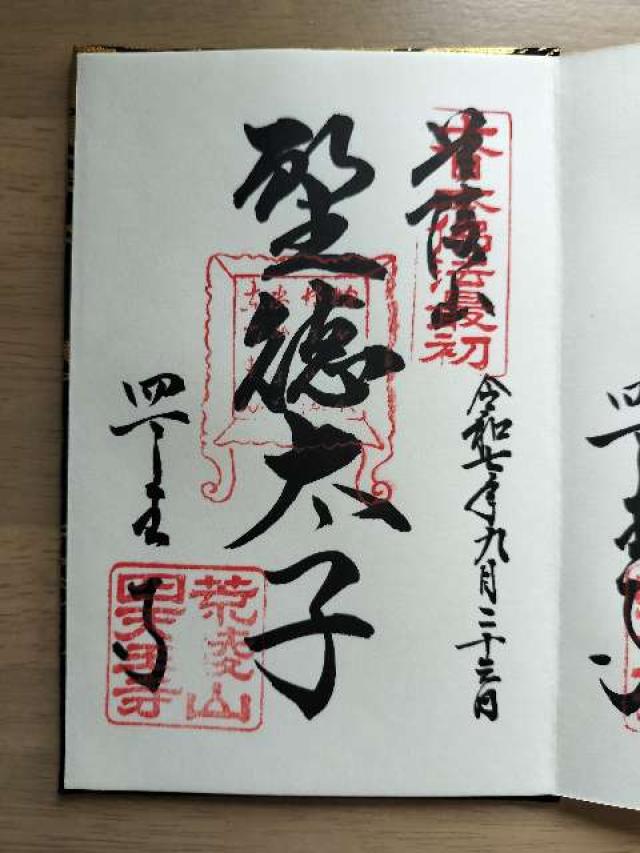 荒陵山
佛法最初
令和七年九月二十三日
聖徳太子
四天王寺
荒陵山
四天王寺